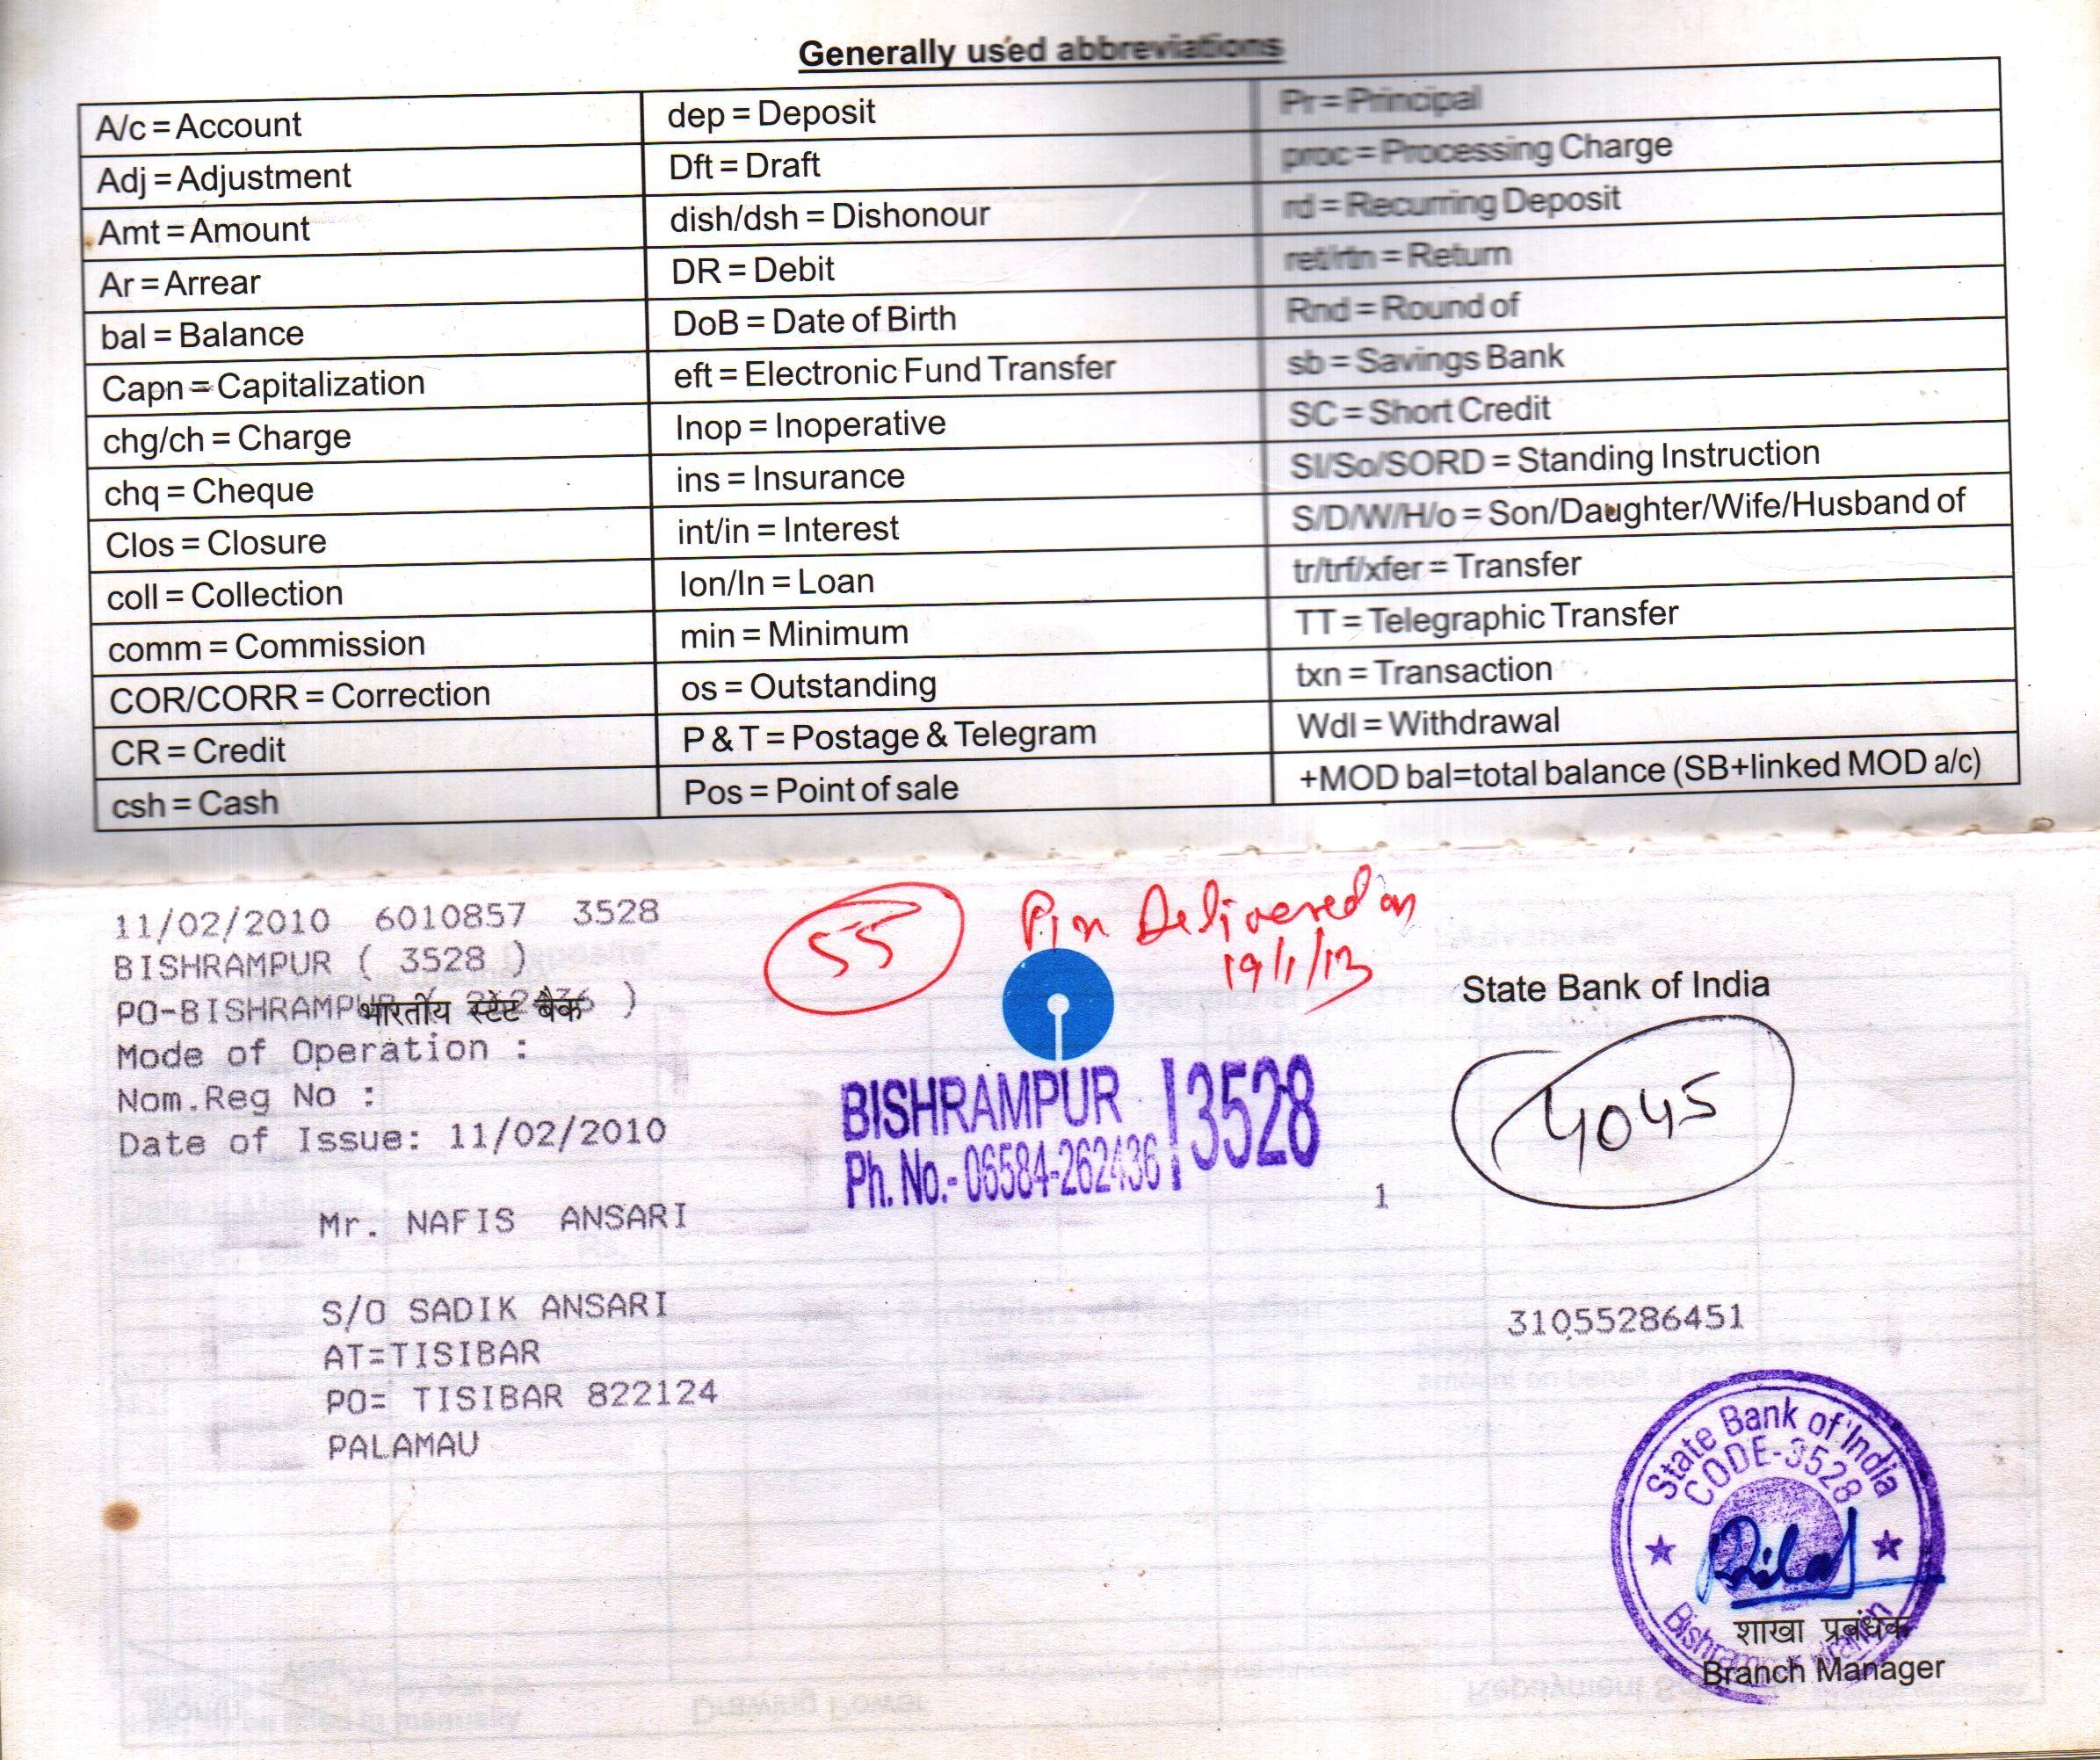 Generally used abbreviations
A/c = Account
Adj = Adjustment
Amt = Amount
Ar = Arrear
bal = Balance
Capn = Capitalization
chg/ch = Charge
chq = Cheque
Clos = Closure
coll = Collection
comm = Commission
COR/CORR = Correction
CR = Credit
csh = Cash
dep = Deposit
Dft = Draft
dish/dsh = Dishonour
DR = Debit
DoB = Date of Birth
eft = Electronic Fund Transfer
Inop = Inoperative
ins = Insurance
int/in = Interest
lon/ln = Loan
min = Minimum
os = Outstanding
P & T = Postage & Telegram
Pos = Point of sale
Pr = Principal
proc = Processing Charge
rd = Recurring Deposit
ret/rtn = Return
Rnd = Round of
sb = Savings Bank
SC = Short Credit
SI/So/SORD = Standing Instruction
S/D/W/H/o = Son/Daughter/Wife/Husband of
tr/trf/xfer = Transfer
TT = Telegraphic Transfer
txn = Transaction
Wdl = Withdrawal
+MOD bal=total balance (SB+linked MOD a/c)
11/02/2010 6010857 3528
BISHRAMPUR ( 3528 )
PO-BISHRAMPUR ( 262436 )
भारतीय स्टेट बैंक
Mode of Operation :
Nom.Reg No :
Date of Issue: 11/02/2010
55
Pin Delivered on
19/1/13
State Bank of India
4045
BISHRAMPUR 3528
Ph. No.- 06584-262436
1
Mr. NAFIS ANSARI
S/O SADIK ANSARI
AT=TISIBAR
PO= TISIBAR 822124
PALAMAU
31055286451
State Bank of India
CODE-3528
शाखा प्रबंधक
Branch Manager